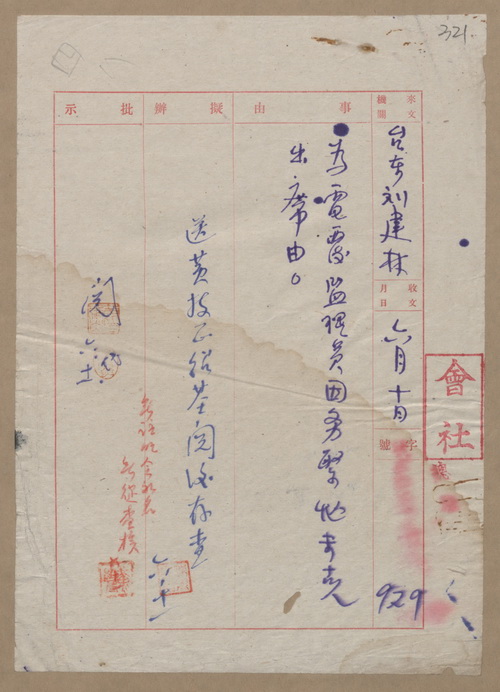 321.
來文機關
台東劉建林
收文
月日
六月十日
字
號
929
會社
事由
為電覆監理員因務繁忙未克
出席由。
擬辦
送黃技正紹基閱後存查
六、十一
批示
閱
六、十一